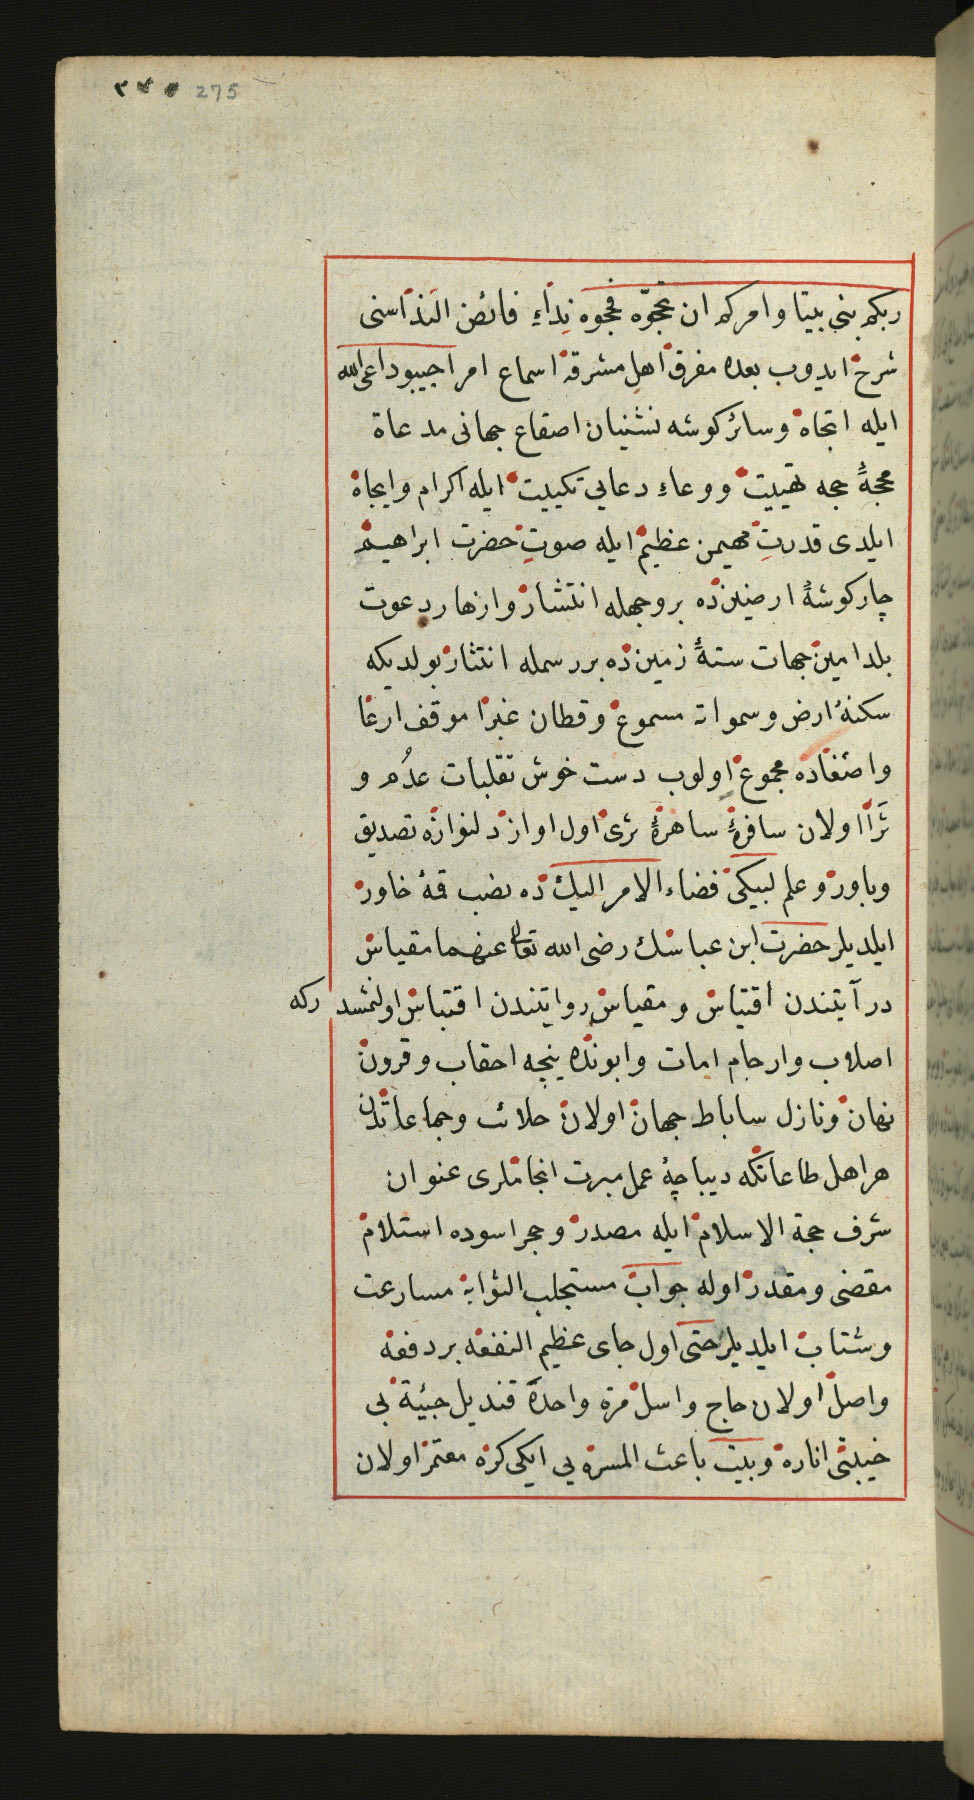 275
ربكم بنى بيتا وامركم ان تحجوّه فحجوه نِدآءِ فائض النداسنى
شرح ايدوب بعده مفرق اهل مشرقه اسماع امر اجيبوداعى الله
ايله اتجاه وسائر كوشه نشنيان اصقاع جهانى مدعاة
محجهٔ حجه تهييت ووعاء دعايى تكييت ايله اكرام وايجاه
ايلدى قدرتِ مهيمن عظيم ايله صوتِ حضرت ابراهيم
چار كوشهٔ ارضيىن ده بر وجهله انتشار وازهار دعوت
بلدامين جهات ستهٔ زمين ده بر رسمله انتثار بولديكه
سكنهٔ ارض وسمواته مسموع وقطان غبرا موقف ارغا
واصغاده مجموع اولوب دست خوش تقلبات عدُم و
ثَرآا ولان سافرهٔ ساهرهٔ ثرى اول اواز دلنوازه تصديق
وباور وعلم لبيكى فضاء الامر اليك ده نصب قمهٔ خاور
ايلديلر حضرت ابن عباسك رضى الله تعالى عنهما مقياس
درآيتندن اقتياس ومقياس روايتندن اقتباس اولنمشدركه
اصلاب وارحام امات وابونده ينچه احقاب وقرون
نهان ونازل ساباط جهان اولان حلائب وجماعاتدن
هر اهل طاعاتكه ديباچهٔ عمل مبرت انجاملرى عنوان
شرف حجة الاسلام ايله مصدر وحجر اسوده استلام
مقضى ومقدر اوله جواب مستجلب الثوابه مسارعت
وشتاب ايلديلر حتى اول جاى عظيم النفعه بر دفعه
واصل اولان حاج واسل مرة واحدة قنديل جبئة بى
خيبتى اناره وبيت باعث المسره يى ايكى كره معتمر اولان